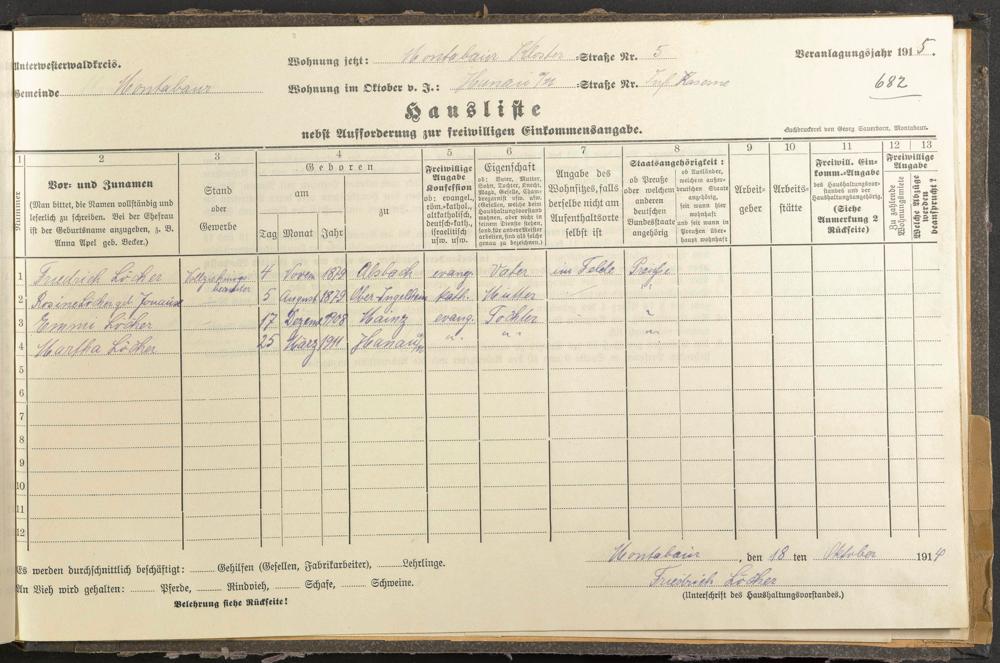 Unterwesterwaldkreis.
Wohnung jetzt: Montabaur Kloster -Straße Nr. 5
Veranlagungsjahr 1915.
Gemeinde Montabaur
Wohnung im Oktober v. J.: Hanau a/M -Straße Nr. Inf. Kaserne
682
Hausliste
nebst Aufforderung zur freiwilligen Einkommensangabe.
Buchdruckerei von Georg Sauerborn, Montabaur.
1 2 3 4 5 6 7 8 9 10 11 12 13
Nummer
Vor- und Zunamen
(Man bittet, die Namen vollständig und
leserlich zu schreiben. Bei der Ehefrau
ist der Geburtsname anzugeben, z. B.
Anna Apel geb. Becker.)
Stand
oder
Gewerbe
Geboren
am
zu
Tag Monat Jahr
Freiwillige
Angabe
Konfession
ob: evangel.,
röm.-kathol.,
altkatholisch,
deutsch-kath.,
israelitisch
usw. usw.
Eigenschaft
ob: Vater, Mutter,
Sohn, Tochter, Knecht,
Magd, Geselle, Cham-
bregarnist usw. usw.
(Gesellen, welche beim
Haushaltungsvorstand
wohnen, aber nicht in
dessen Dienste stehen,
sond. für andere Meister
arbeiten, sind als solche
genau zu bezeichnen.)
Angabe des
Wohnsitzes, falls
derselbe nicht am
Aufenthaltsorte
selbst ist
Staatsangehörigkeit:
ob Preuße
oder welchem
anderen
deutschen
Bundesstaate
angehörig
ob Ausländer,
welchem außer-
deutschen Staate
angehörig,
seit wann hier
wohnhaft und
seit wann in
Preußen über-
haupt wohnhaft
Arbeit-
geber
Arbeits-
stätte
Freiwill. Ein-
komm.-Angabe
des Haushaltungsvor-
standes und der
Haushaltungsangehörig.
(Siehe
Anmerkung 2
Rückseite)
Freiwillige
Angabe
Zu zahlende
Wohnungsmiete
Welche Abzüge
werden
beansprucht?
1 Friedrich Löcher Vollziehungsbeamter 4 Novem 1879 Alsbach evang. Vater im Felde Preuße
2 Rosine Löcher geb. 5 August 1879 Ober Ingelheim kath. Mutter "
3 Emmi Löcher 17 Dezem 1908 Mainz evang. Tochter "
4 Martha Löcher 25 März 1911 Hanau a/M " " "
5
6
7
8
9
10
11
12
Es werden durchschnittlich beschäftigt: Gehilfen (Gesellen, Fabrikarbeiter), Lehrlinge.
An Vieh wird gehalten: Pferde, Rindvieh, Schafe, Schweine.
Belehrung siehe Rückseite!
Montabaur, den 18 ten Oktober 1914
Friedrich Löcher
(Unterschrift des Haushaltungsvorstandes.)